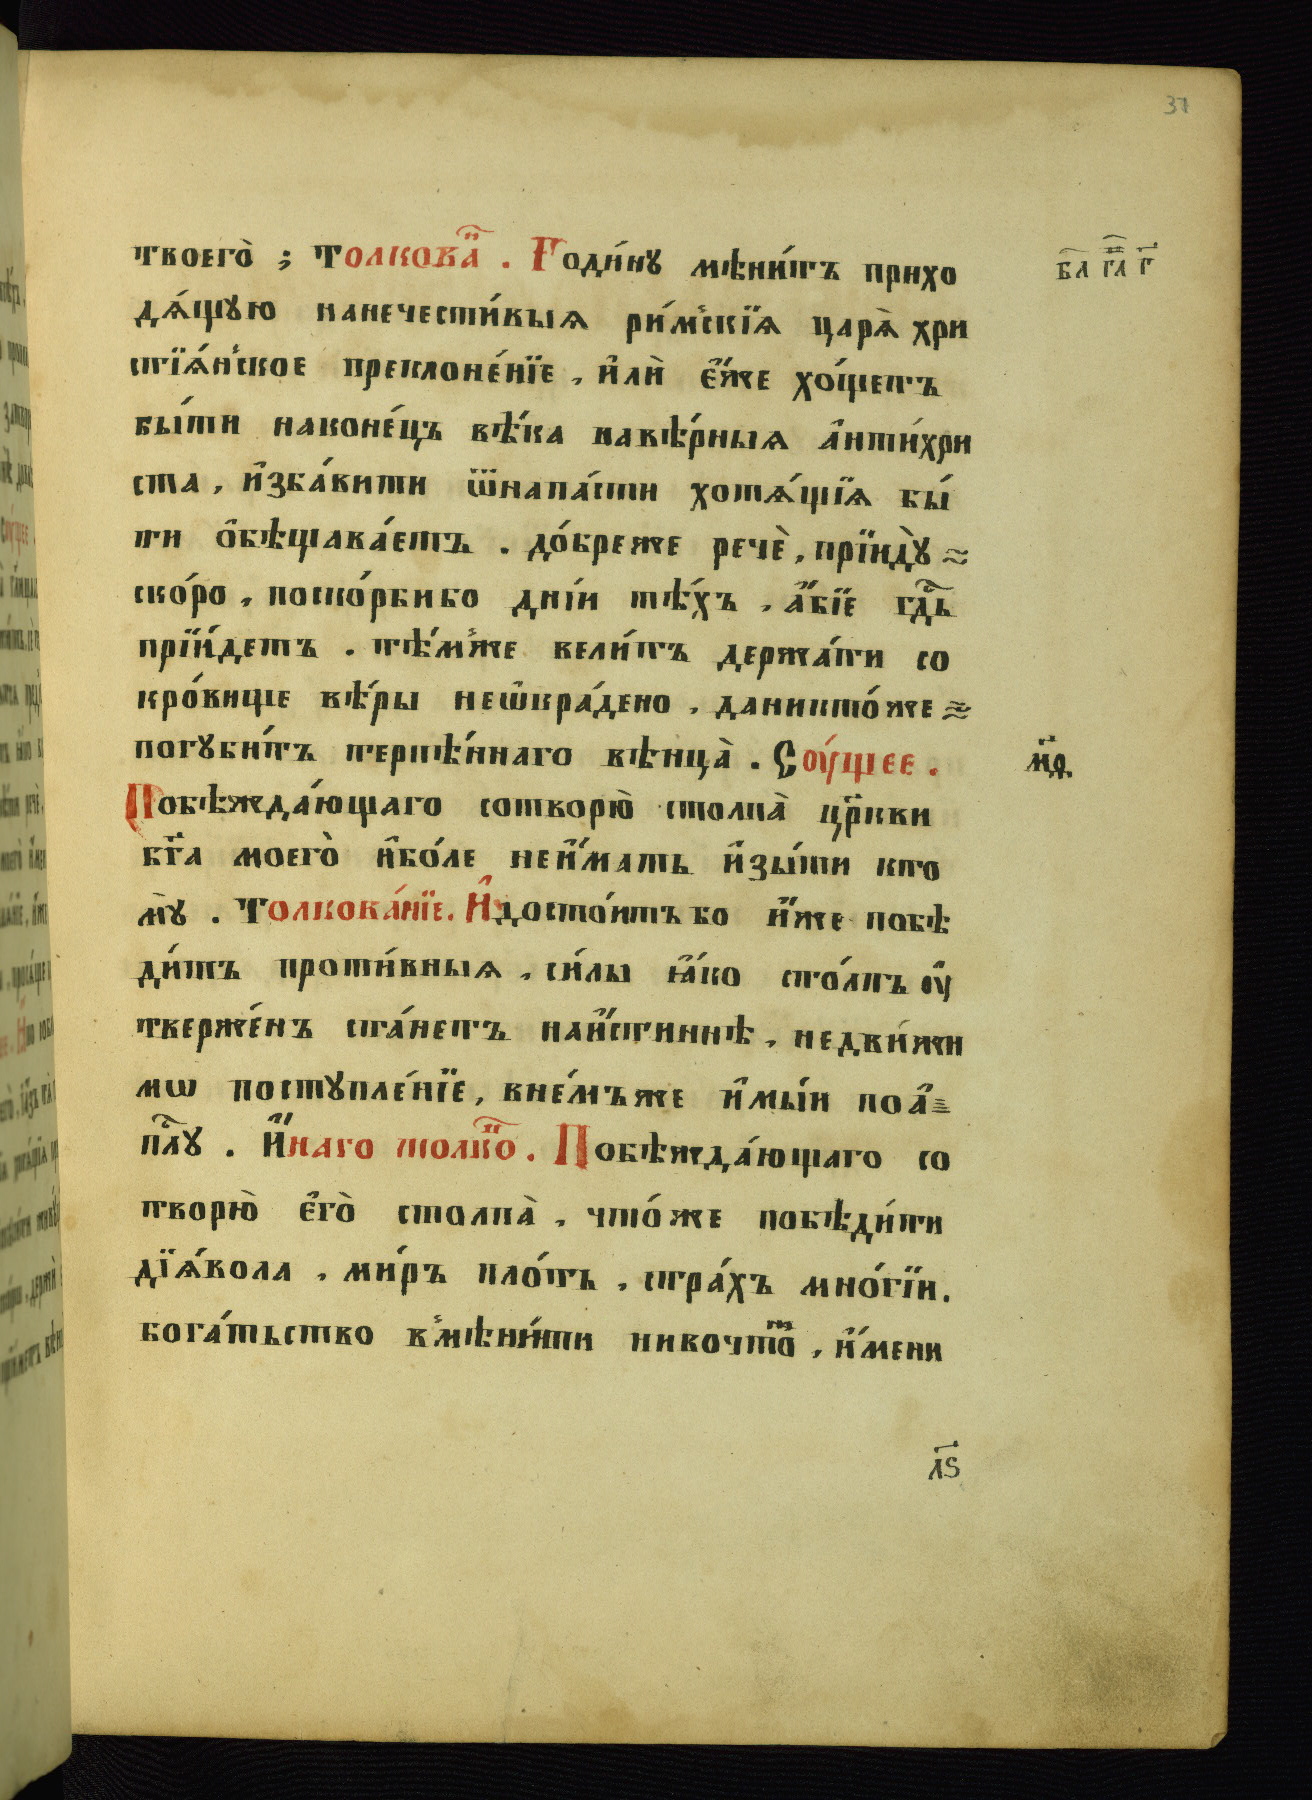 37
твоего̀ ; Толкова́н҃ . Годи́ну мѣни́тъ прихо
дѧ́щую нанечести́выѧ ри́мскїѧ царѧ̀ хри
стїѧ́нское преклоне́нїе , и҆лѝ є҆́же хо́щетъ
бы́ти наконе́цъ вѣ́ка навѣ́рныѧ а҆нти́хри
ста , и҆зба́вити ѿнапа́сти хотѧ́щїѧ бы́
ти ѻ҆бѣщава́етъ . до́бреже речѐ , прїидꙋ̀
ско́ро , поско́рбибо дні́и тѣ́хъ , а҆́бїе гд҃ь
прїи́детъ . тѣ́мже вели́тъ держа́ти со
кро́вище вѣ́ры неѡ҆кра́дено , даникто́же
погꙋби́тъ терпѣ́ннаго вѣнца̀ . Сꙋ́щее .
Побѣжда́ющаго сотворю̀ столпа̀ цр҃кви
бг҃а моего̀ и҆бо́ле неи҆́мать и҆зы́ти кто
мꙋ̀ . Толкова́нїе . И҆достои́тъ бо и҆́же побѣ
ди́тъ проти́вныѧ , си́лы ꙗ҆́ко сто́лпъ ᲂу҆
тверже́нъ ста́нетъ наи҆́стиннѣ , недви́жи
мѡ постꙋпле́нїе , вне́мъже и҆мы́и поа҆
пⷭ҇лꙋ . И҆́наго толко . Побѣжда́ющаго со
творю̀ є҆го̀ столпа̀ , что́же побѣди́ти
дїѧ́вола , ми́ръ пло́ть , стра́хъ мно́гїи .
бога́тьство вмѣни́ти никочто́ , и҆́мени
бл гл г
мѳ
лѕ